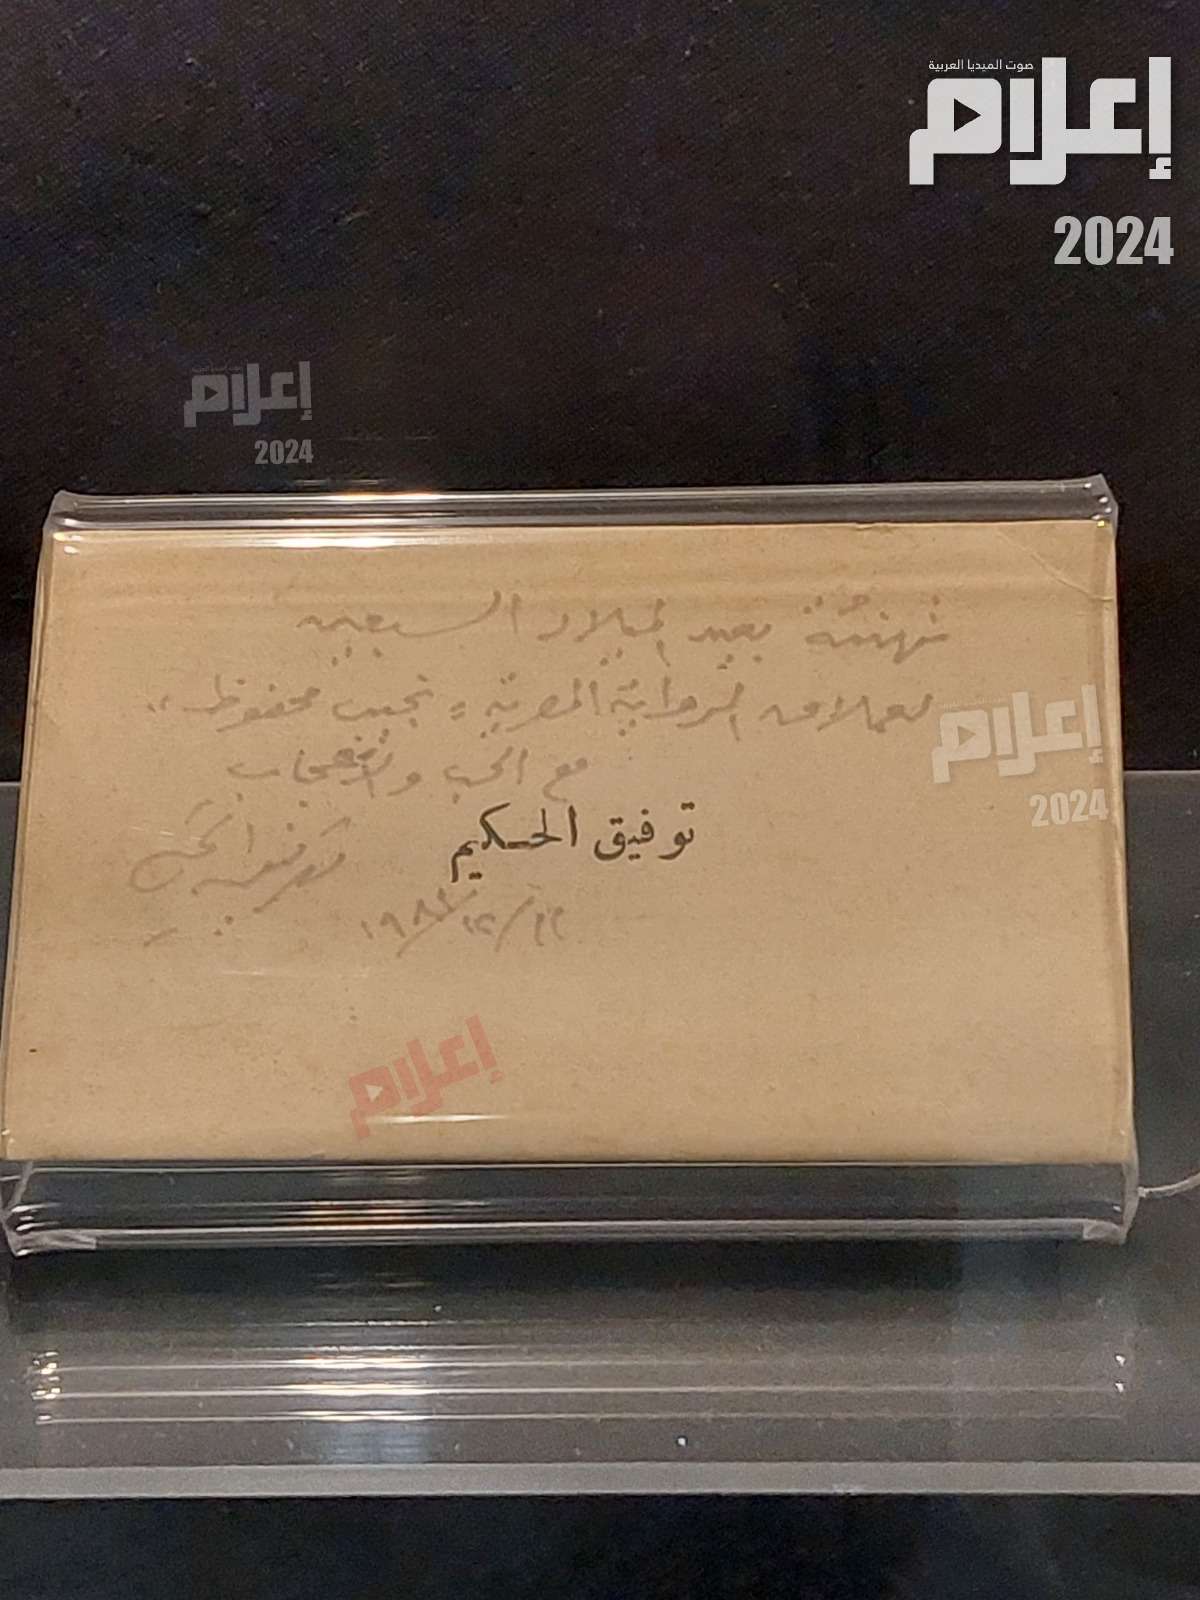 صوت الميديا العربية
إعلام
2024
إعلام
2024
تهنئة بعيد الميلاد السبعين
لعملاق الرواية المصرية "نجيب محفوظ"
مع الحب والإعجاب
توفيق الحكيم
توفيق الحكيم
إعلام
2024
إعلام